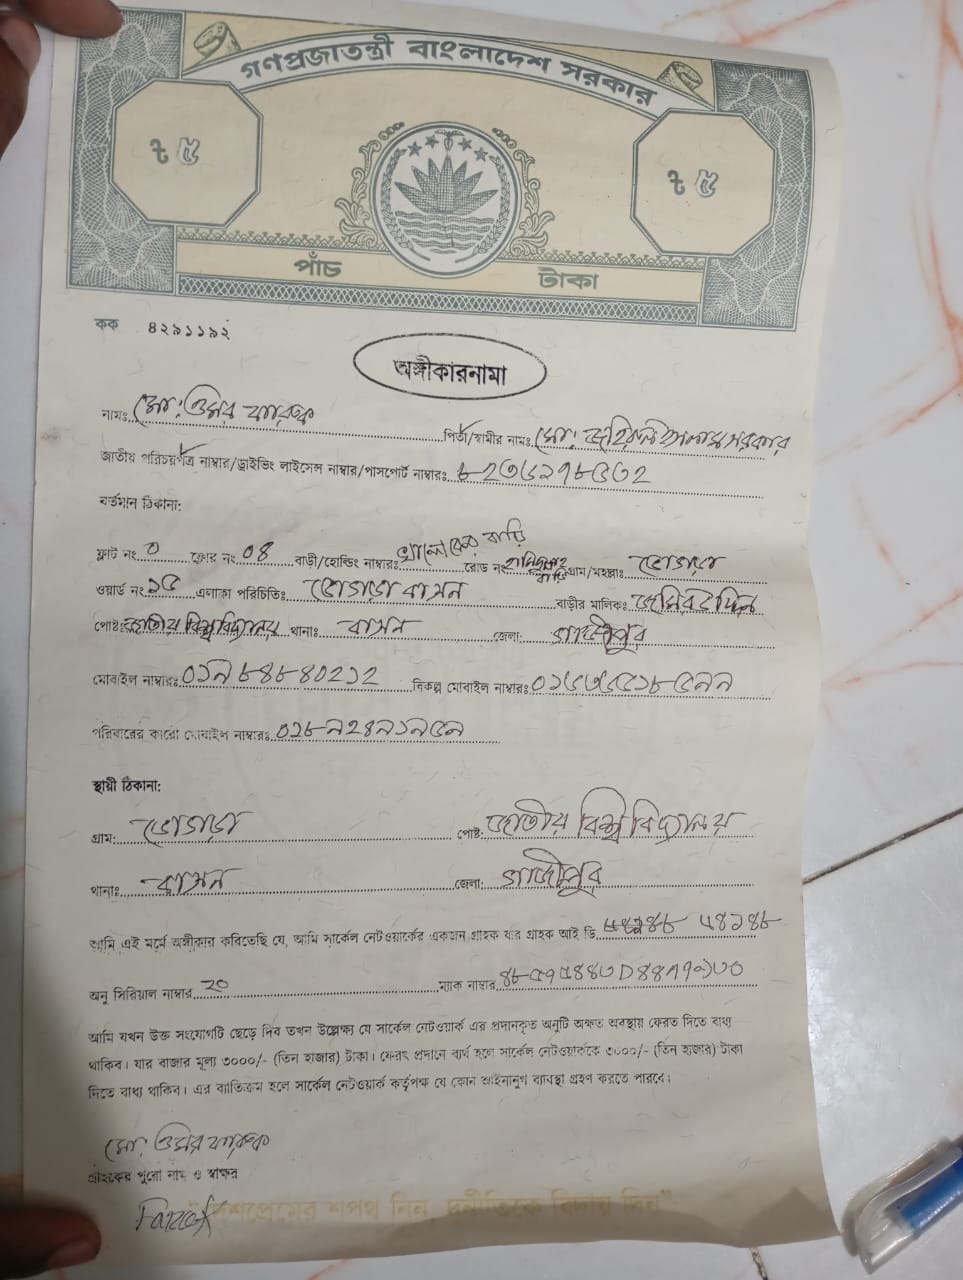 গণপ্রজাতন্ত্রী বাংলাদেশ সরকার
৳ ৫ ৳ ৫
পাঁচ টাকা
কক ৪২৯১১৯২
অঙ্গীকারনামা
নামঃ মো: ওমর ফারুক
পিতা/স্বামীর নামঃ মো: জহিরুল ইসলাম সরকার
জাতীয় পরিচয়পত্র নাম্বার/ড্রাইভিং লাইসেন্স নাম্বার/পাসপোর্ট নাম্বারঃ
বর্তমান ঠিকানা:
ফ্লাট নং ০ ফ্লোর নং ০৪ বাড়ী/হোল্ডিং নাম্বারঃ বাড়ি রোড নং গ্রাম/মহল্লাঃ ভোগড়া
ওয়ার্ড নং ১৫ এলাকা পরিচিতিঃ ভোগড়া বাসন বাড়ীর মালিকঃ
পোষ্টঃ জাতীয় বিশ্ববিদ্যালয় থানাঃ বাসন জেলা: গাজীপুর
মোবাইল নাম্বারঃ বিকল্প মোবাইল নাম্বারঃ
পরিবারের কারো মোবাইল নাম্বারঃ
স্থায়ী ঠিকানা:
গ্রাম: ভোগড়া পোষ্ট: জাতীয় বিশ্ববিদ্যালয়
থানাঃ বাসন জেলা: গাজীপুর
আমি এই মর্মে অঙ্গীকার করিতেছি যে, আমি সার্কেল নেটওয়ার্কের একজন গ্রাহক যার গ্রাহক আই ডি
অনু সিরিয়াল নাম্বার ২০ ম্যাক নাম্বার
আমি যখন উক্ত সংযোগটি ছেড়ে দিব তখন উল্লেক্ষ্য যে সার্কেল নেটওয়ার্ক এর প্রদানকৃত অনুটি অক্ষত অবস্থায় ফেরত দিতে বাধ্য
থাকিব। যার বাজার মূল্য ৩০০০/- (তিন হাজার) টাকা। ফেরৎ প্রদানে ব্যর্থ হলে সার্কেল নেটওয়ার্ককে ৩০০০/- (তিন হাজার) টাকা
দিতে বাধ্য থাকিব। এর ব্যতিক্রম হলে সার্কেল নেটওয়ার্ক কর্তৃপক্ষ যে কোন আইনানুগ ব্যবস্থা গ্রহণ করতে পারবে।
মো: ওমর ফারুক
গ্রাহকের পুরো নাম ও স্বাক্ষর
"দেশপ্রেমের শপথ নিন, দুর্নীতিকে বিদায় দিন"